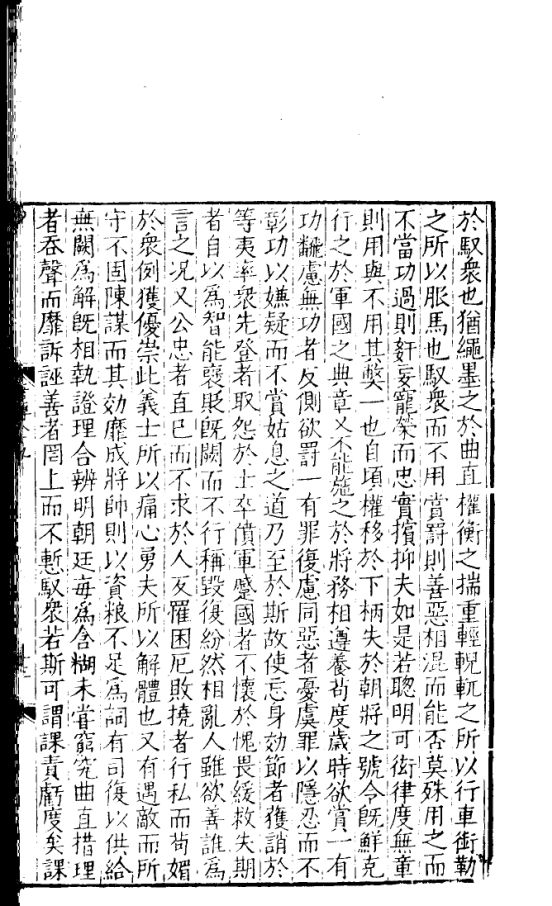 於馭衆也猶繩墨之於曲直權衡之揣重輕輗軏之所以行車銜勒
之所以服馬也馭衆而不用賞罰則善惡相混而能否莫殊用之而
不當功過則姧妄寵榮而忠實擯抑夫如是若聰明可衒律度無章
則用與不用其獘一也自頃權移於下柄失於朝將之號令旣鮮克
行之於軍國之典章又不能施之於將務相遵養苟度歲時欲賞一有
功翻慮無功者反側欲罰一有罪復慮同惡者憂虞罪以隱忍而不
彰功以嫌疑而不賞姑息之道乃至於斯故使忘身効節者獲誚於
等夷率衆先登者取怨於士卒僨軍蹙國者不懷於愧畏緩救失期
者自以爲智能襃貶旣闕而不行稱毀復紛然相亂人雖欲善誰爲
言之况又公忠者直巳而不求於人反罹困厄敗撓者行私而苟媚
於衆例獲優崇此義士所以痛心勇夫所以解體也又有遇敵而所
守不固陳謀而其効靡成將帥則以資粮不足爲詞有司復以供給
無闕爲解旣相執證理合辨明朝廷每爲含糊未甞窮究曲直措理
者吞聲而靡訴誣善者罔上而不慙馭衆若斯可謂課責虧度矣課